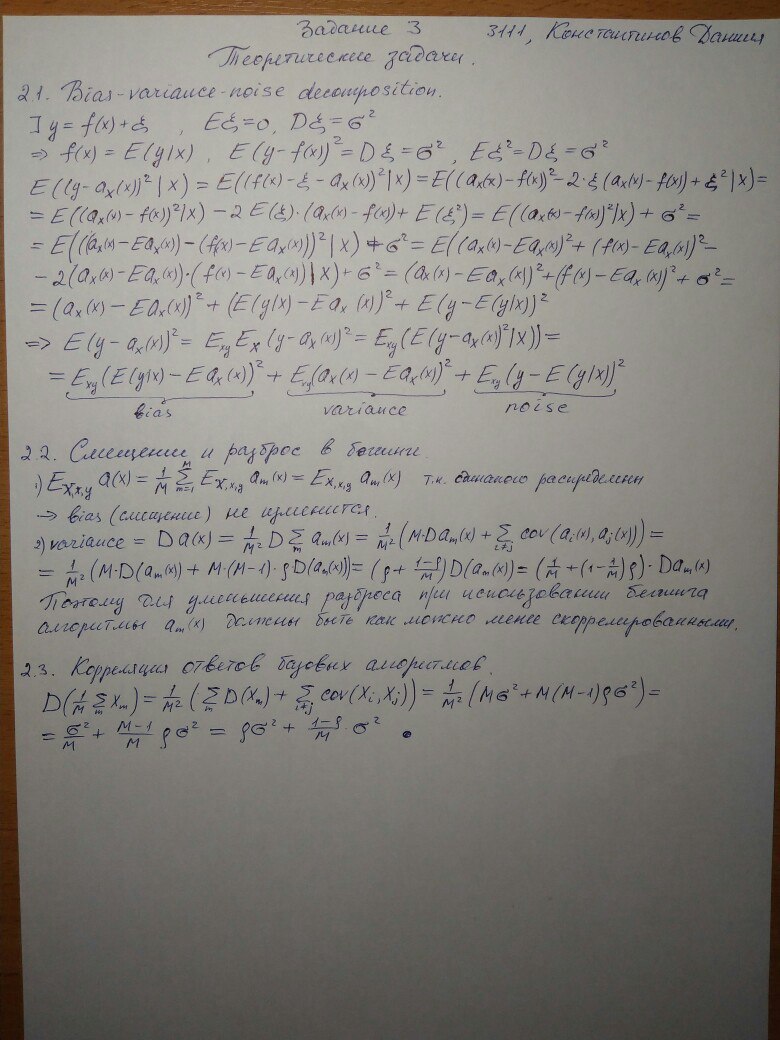 Задание 3 3111, Константинов Даниил
Теоретические задачи.
2.1. Bias-variance-noise decomposition.
∃ y = f(x) + ξ , Eξ = 0, Dξ = σ²
⇒ f(x) = E(y|x) , E(y-f(x))² = Dξ = σ² , Eξ² = Dξ = σ²
E((y-a_X(x))²|x) = E((f(x) - ξ - a_X(x))²|x) = E((a_X(x) - f(x))² - 2·ξ(a_X(x) - f(x)) + ξ²|x) =
= E((a_X(x) - f(x))²|x) - 2E(ξ)·(a_X(x) - f(x)) + E(ξ²) = E((a_X(x) - f(x))²|x) + σ² =
= E(((a_X(x) - Ea_X(x)) - (f(x) - Ea_X(x)))²|x) + σ² = E((a_X(x) - Ea_X(x))² + (f(x) - Ea_X(x))² -
- 2(a_X(x) - Ea_X(x))·(f(x) - Ea_X(x))|x) + σ² = (a_X(x) - Ea_X(x))² + (f(x) - Ea_X(x))² + σ² =
= (a_X(x) - Ea_X(x))² + (E(y|x) - Ea_X(x))² + E(y - E(y|x))²
⇒ E(y - a_X(x))² = E_{xy} E_X (y - a_X(x))² = E_{xy}(E(y - a_X(x)²|x)) =
= E_{xy}(E(y|x) - Ea_X(x))² + E_{xy}(a_X(x) - Ea_X(x))² + E_{xy}(y - E(y|x))²
bias variance noise
2.2. Смещение и разброс в бэггинге.
1) E_{X,x,y} a(x) = 1/M Σ_{m=1}^{M} E_{X,x,y} a_m(x) = E_{X,x,y} a_m(x) т.к. одинаково распределены
→ bias (смещение) не изменится.
2) variance = Da(x) = 1/M² D Σ_m a_m(x) = 1/M² (M·Da_m(x) + Σ_{i≠j} cov(a_i(x), a_j(x))) =
= 1/M² (M·D(a_m(x)) + M·(M-1)·ρD(a_m(x))) = (ρ + (1-ρ)/M) D(a_m(x)) = (1/M + (1-1/M)ρ)·Da_m(x)
Поэтому для уменьшения разброса при использовании бэггинга
алгоритмы a_m(x) должны быть как можно менее скоррелированными.
2.3. Корреляция ответов базовых алгоритмов.
D(1/M Σ_m X_m) = 1/M² (Σ_m D(X_m) + Σ_{i≠j} cov(X_i, X_j)) = 1/M² (Mσ² + M(M-1)ρσ²) =
= σ²/M + (M-1)/M ρσ² = ρσ² + (1-ρ)/M · σ² •